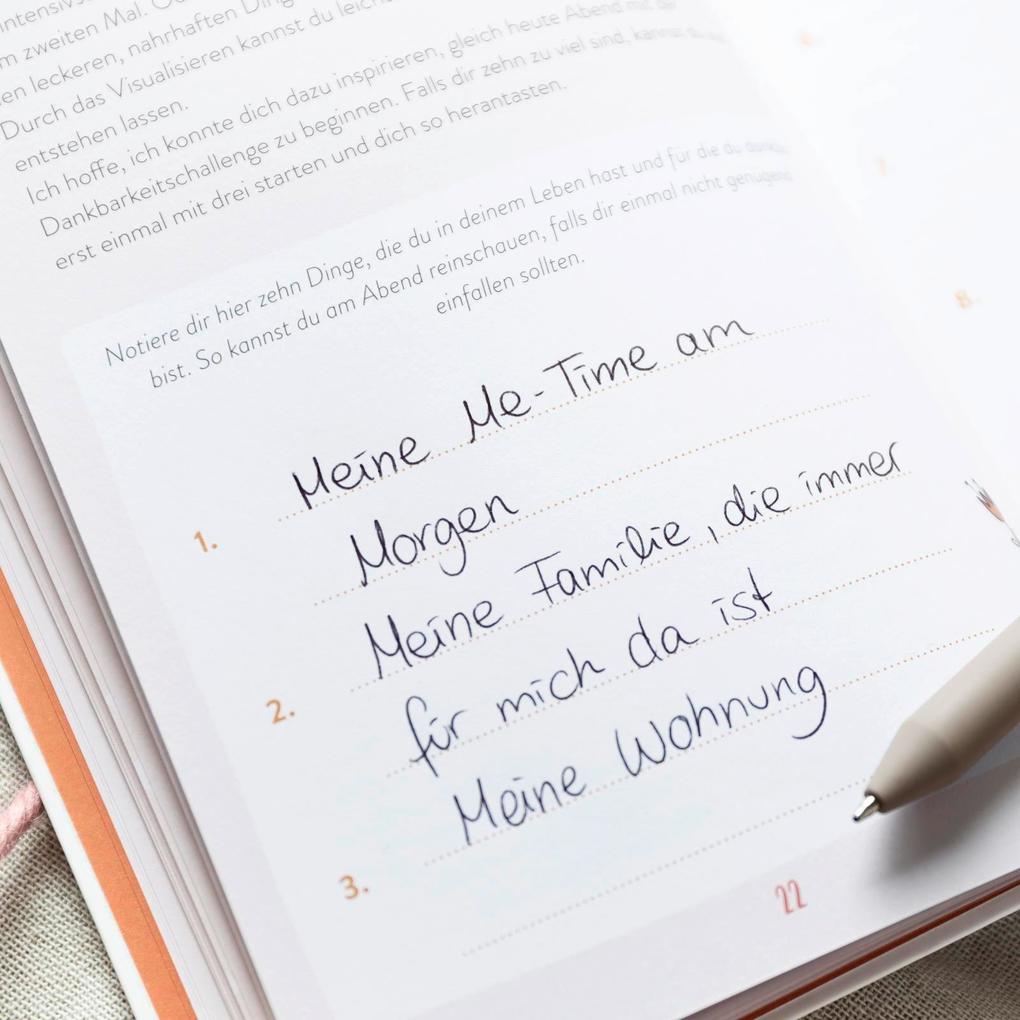 zweiten Mal.
leckeren, nahrhaften
Durch das Visualisieren kannst du
entstehen lassen.
Ich hoffe, ich konnte dich dazu inspirieren, gleich heute Abend mit
Dankbarkeitschallenge zu beginnen. Falls dir zehn zu viel sind, kannst du
erst einmal mit drei starten und dich so herantasten.
Notiere dir hier zehn Dinge, die du in deinem Leben hast und für die du dankbar
bist. So kannst du am Abend reinschauen, falls dir einmal nicht genügend
einfallen sollten.
1. Meine Me-Time am
Morgen
2. Meine Familie, die immer
für mich da ist
3. Meine Wohnung
22
7.
8.